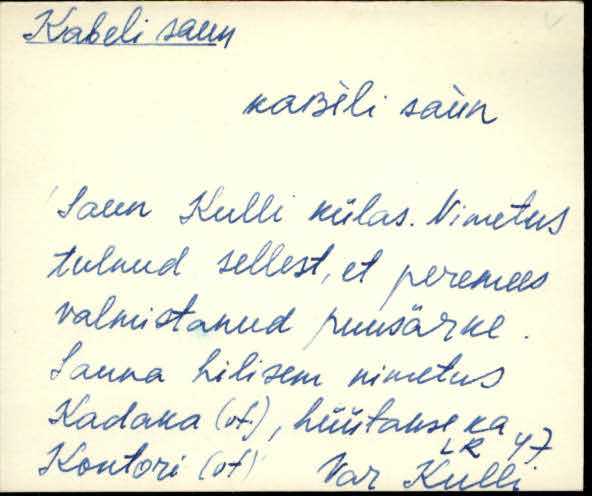 Kabeli saun
kaBèli saùn
Saun Kulli külas. Nimetus
tulnud sellest, et peremees
valmistanud puusärke.
Sauna hilisem nimetus
Kadaka (vt.), hüütakse ka
Kontori (vt)
LR 47
Var Kulli